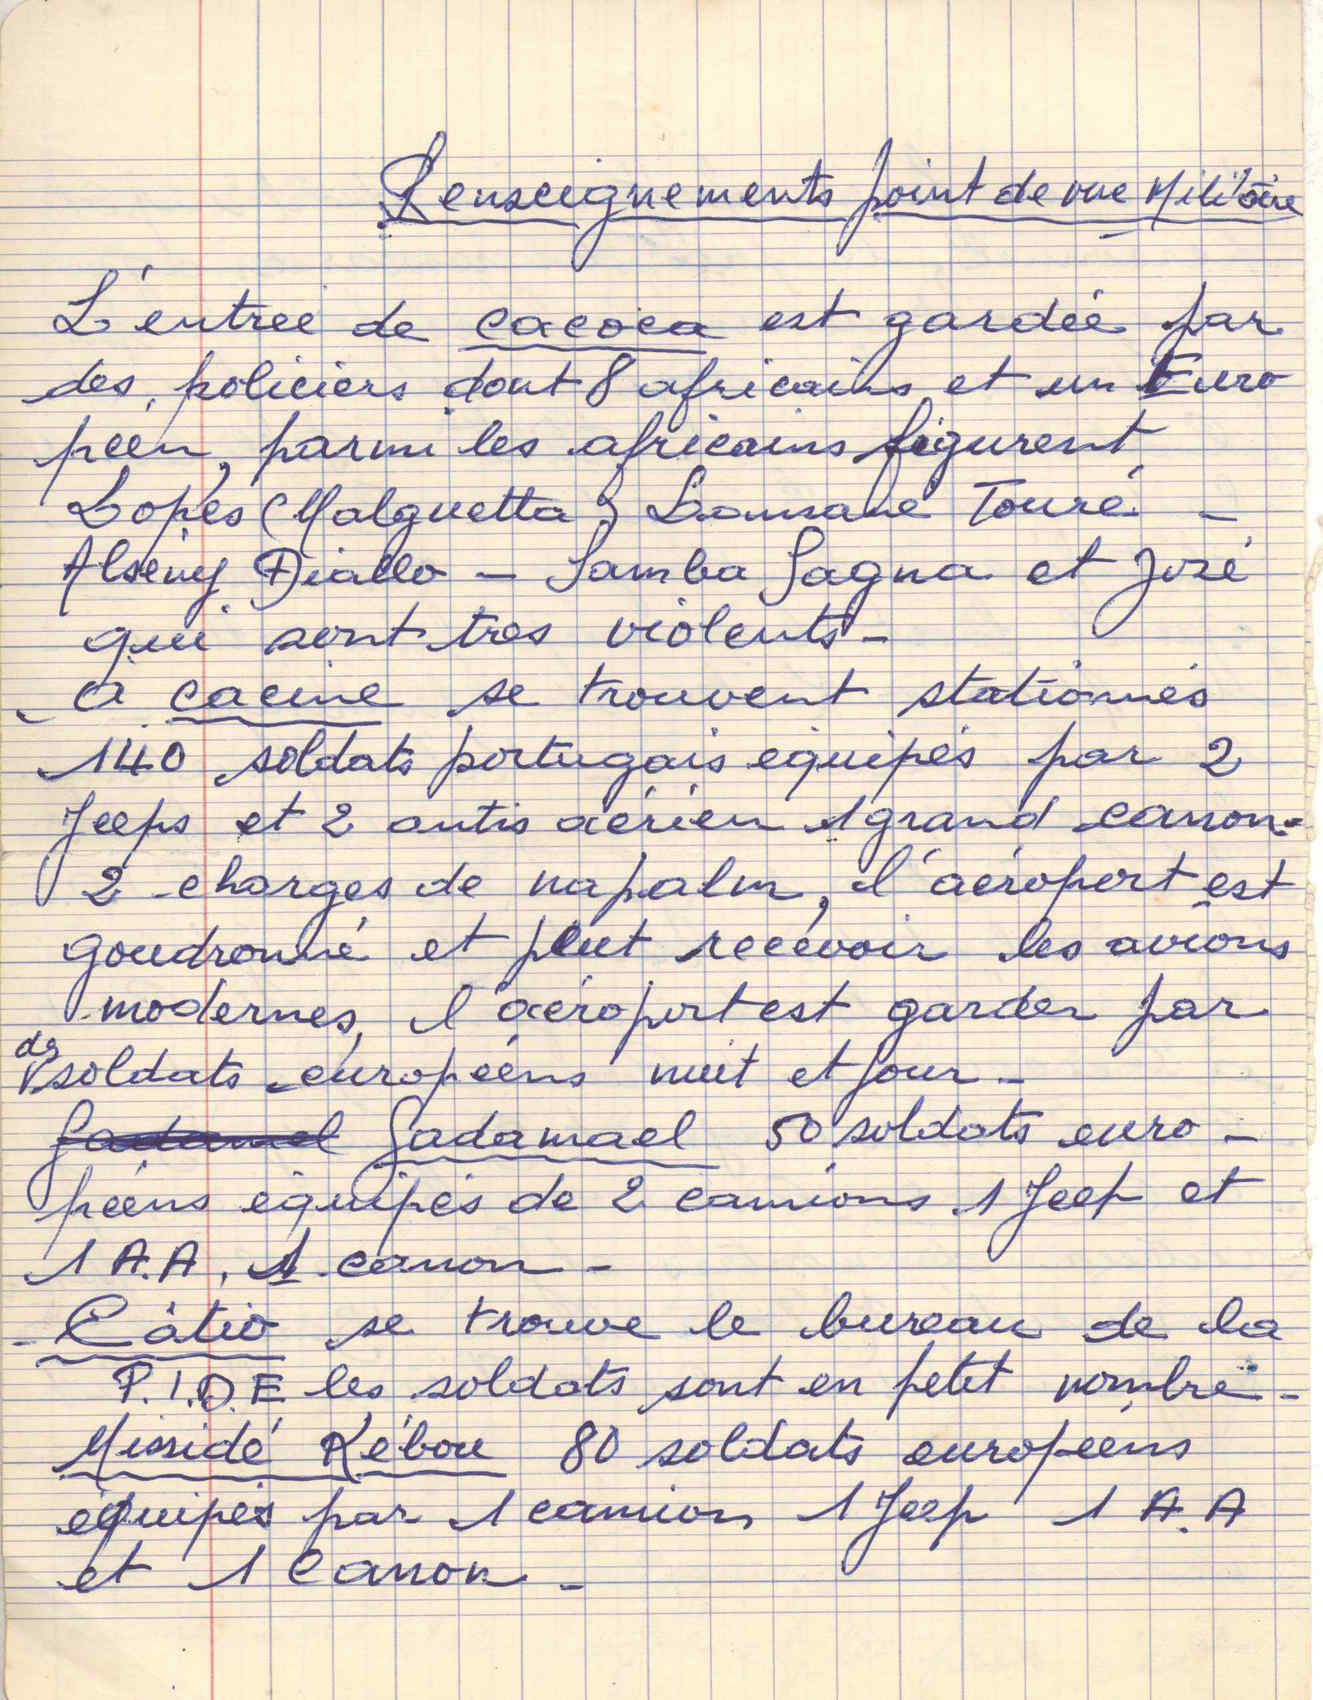 Renseignements point de vue Militaire
L'entrée de cacoca est gardée par
des policiers dont 8 africains et un Euro
péen, parmi les africains figurent
Lopes (Malguetta) Lansane Touré -
Alsény Diallo - Samba Sagna et José
qui sont très violents -
- à cacine se trouvent stationnés
140 soldats portugais équipés par 2
Jeeps et 2 antis aérien 1 grand canon -
2 charges de napalm, l'aéroport est
goudronné et peut recevoir les avions
modernes, l'aéroport est garder par
des soldats européens nuit et jour -
Gadamael Gadamael 50 soldats euro -
péens équipés de 2 camions 1 Jeep et
1 A.A, 1 canon -
- Câtio se trouve le bureau de la
P.I.D.E les soldats sont en petit nombre -
Missidé Kébou 80 soldats européens
équipés par 1 camion 1 Jeep 1 A.A
et 1 Canon -